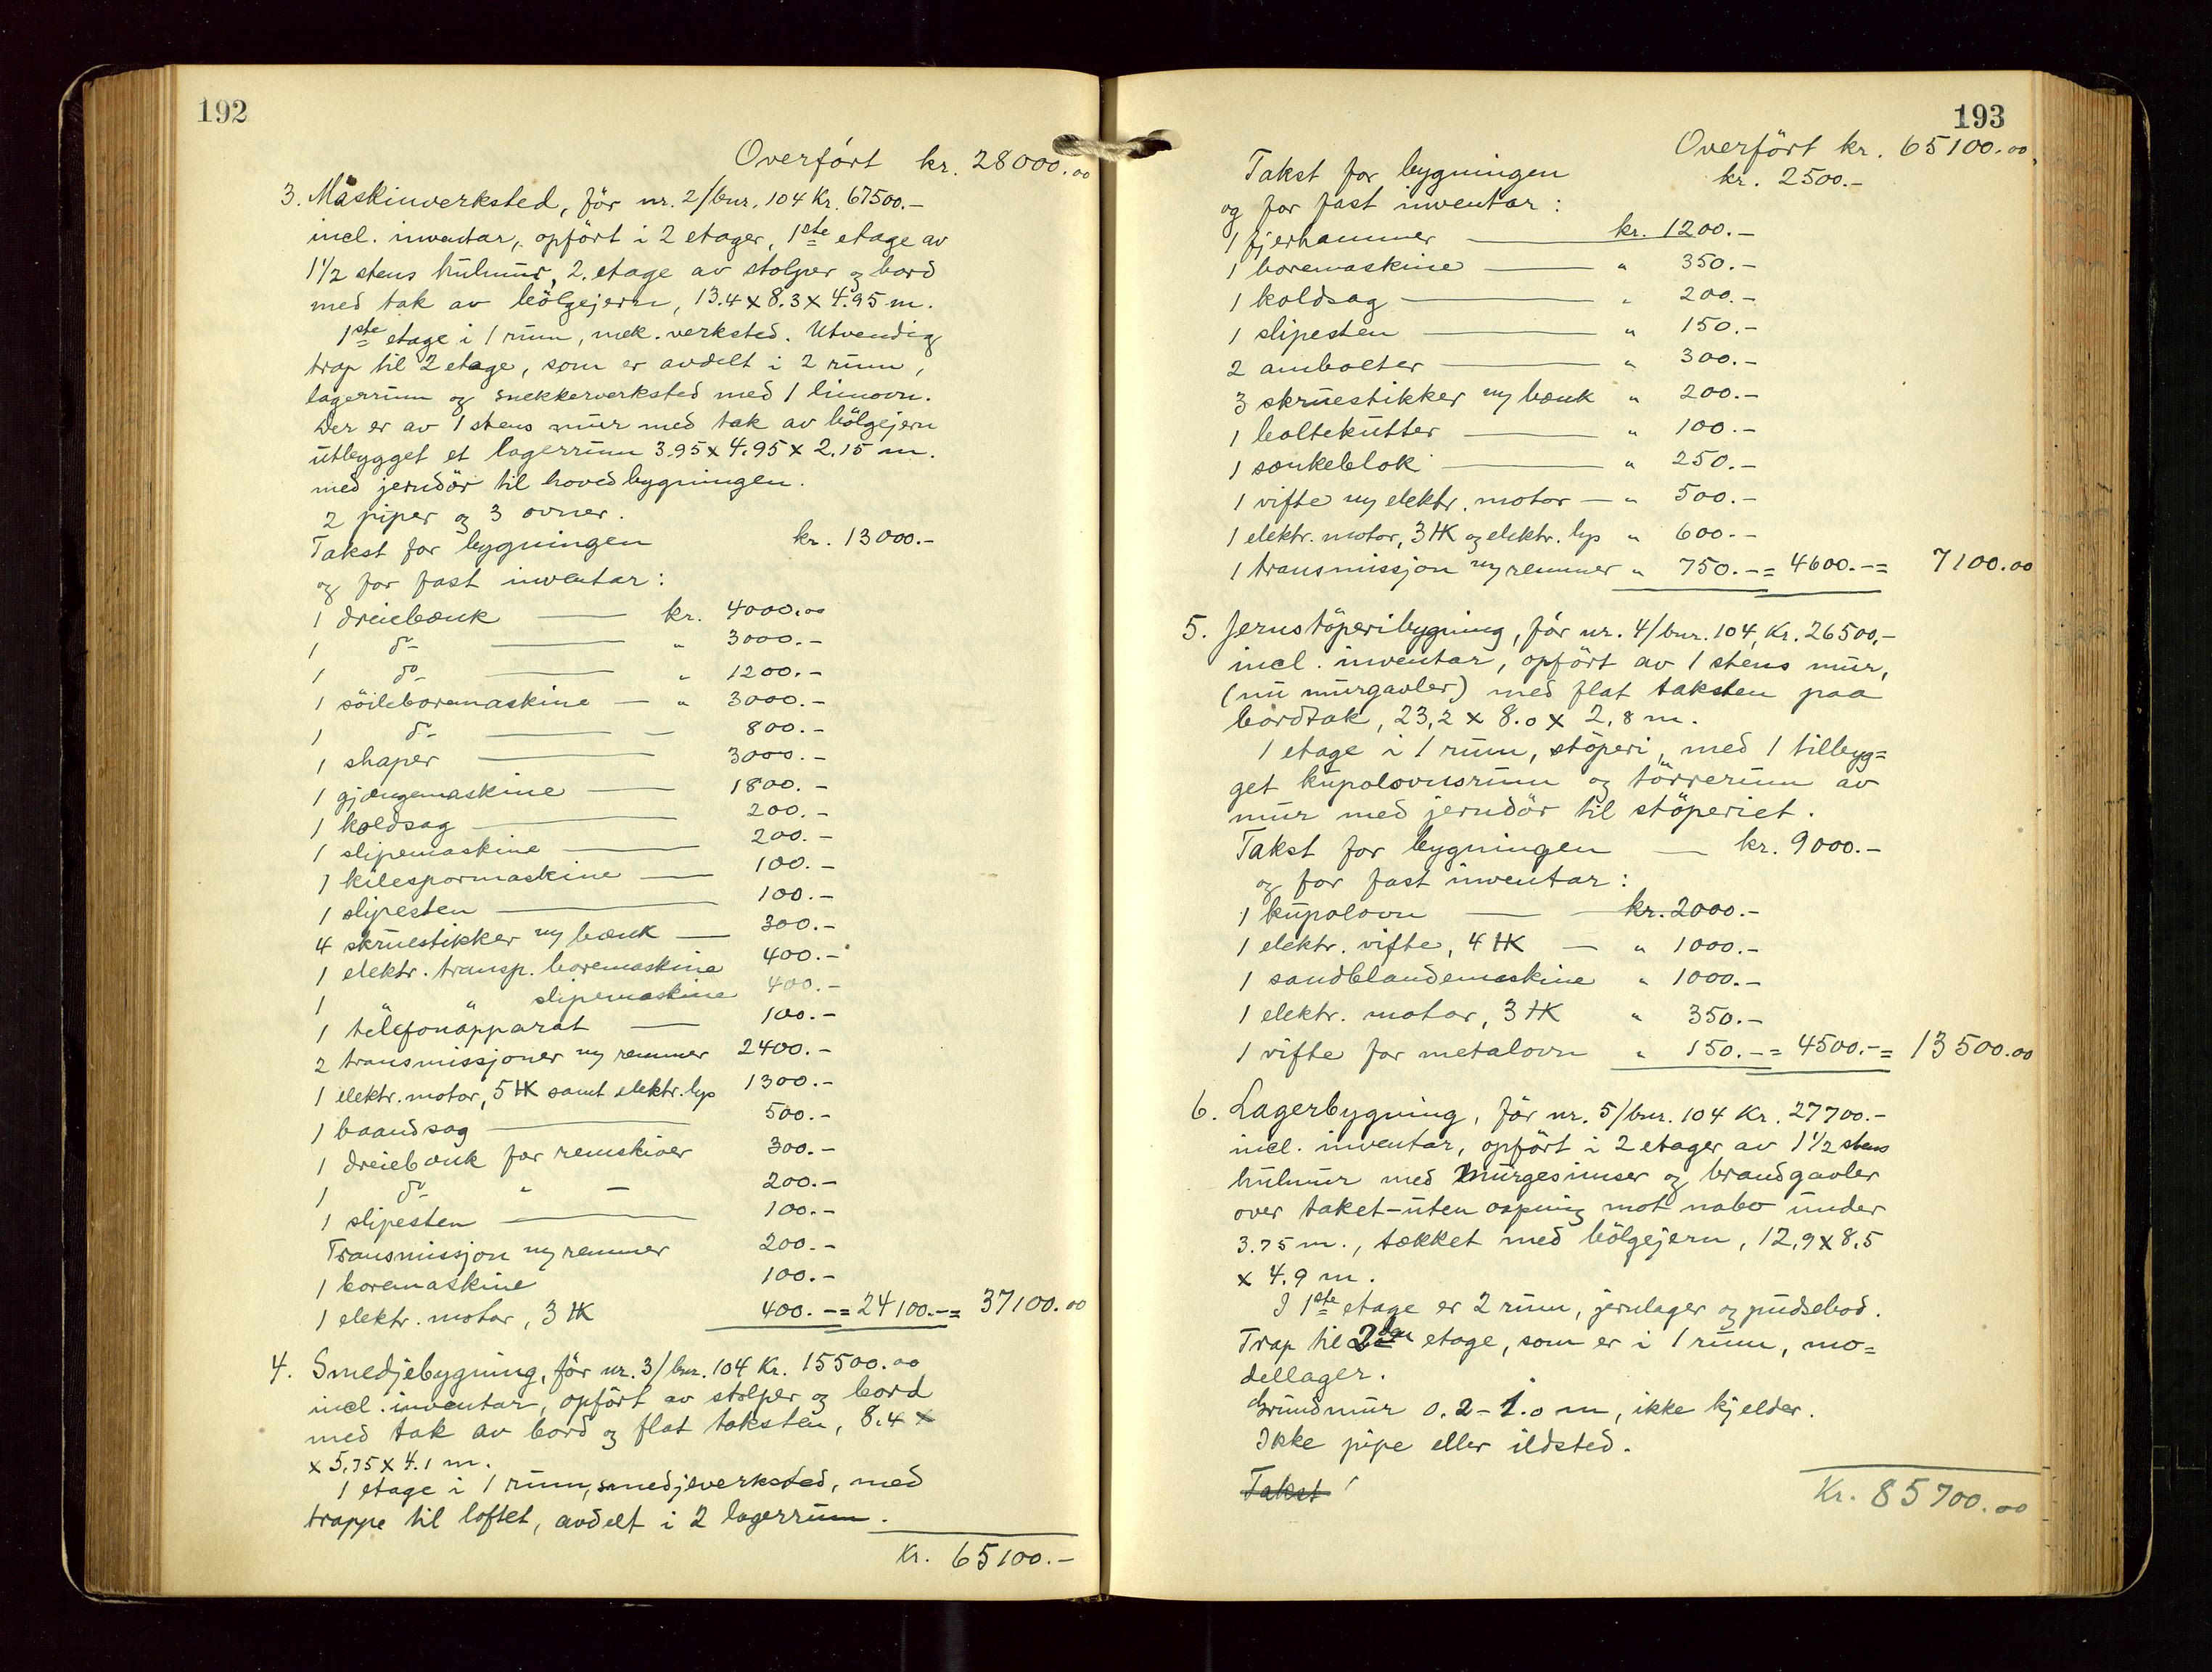 192
Overfört kr. 28000.00
3. Maskinverksted, för nr. 2/bnr. 104 Kr. 67500.-
incl. inventar, opfört i 2 etager, 1ste etage av
1 1/2 stens hulmur, 2. etage av stolper og bord
med tak av bölgejern, 13.4 x 8.3 x 4.95 m.
1ste etage i 1 rum, mek. verksted. Utvendig
trap til 2 etage, som er avdelt i 2 rum,
lagerrum og snekkerverksted med 1 limovn.
Der er av 1 stens mur med tak av bölgejern
utbygget et lagerrum 3.95 x 4.95 x 2.15 m.
med jerndör til hovedbygningen.
2 piper og 3 ovner.
Takst for bygningen kr. 13000.-
og for fast inventar:
1 dreiebænk — kr. 4000.00
1 do — " 3000.-
1 do — " 1200.-
1 söileboremaskine — " 3000.-
1 do — 800.-
1 shaper — 3000.-
1 gjængemaskine — 1800.-
1 koldsag — 200.-
1 slipemaskine — 200.-
1 kilespormaskine — 100.-
1 slipesten — 100.-
4 skruestikker m/ bænk — 300.-
1 elektr. transp. boremaskine 400.-
1 " " slipemaskine 400.-
1 telefonapparat — 100.-
2 transmissjoner m/ remmer 2400.-
1 elektr. motor, 5 HK samt elektr. lys 1300.-
1 baandsag — 500.-
1 dreiebænk for remskiver 300.-
1 do " — 200.-
1 slipesten — 100.-
Transmissjon m/ remmer 200.-
1 boremaskine 100.-
1 elektr. motor, 3 HK 400.- = 24100.- = 37100.00
4. Smedjebygning, för nr. 3/bnr. 104 Kr. 15500.00
incl. inventar, opfört av stolper og bord
med tak av bord og flat taksten, 8.4 x
x 5.75 x 4.1 m.
1 etage i 1 rum, smedjeverksted, med
trappe til loftet, avdelt i 2 lagerrum.
Kr. 65100.-
193
Overfört kr. 65100.00
Takst for bygningen kr. 2500.-
og for fast inventar:
1 fjerhammer — kr. 1200.-
1 boremaskine — " 350.-
1 koldsag — " 200.-
1 slipesten — " 150.-
2 ambolter — " 300.-
3 skruestikker m/ bænk " 200.-
1 boltekutter — " 100.-
1 sænkeblok — " 250.-
1 vifte m/ elektr. motor — " 500.-
1 elektr. motor, 3 HK og elektr. lys " 600.-
1 transmissjon m/ remmer " 750.- = 4600.- = 7100.00
5. Jernstöperibygning, för nr. 4/bnr. 104, Kr. 26500.-
incl. inventar, opfört av 1 stens mur,
(nu murgavler) med flat taksten paa
bordtak, 23,2 x 8.0 x 2,8 m.
1 etage i 1 rum, stöperi, med 1 tilbyg=
get kupolovnsrum og törrerum av
mur med jerndör til stöperiet.
Takst for bygningen — kr. 9000.-
og for fast inventar:
1 kupolovn — kr. 2000.-
1 elektr. vifte, 4 HK — " 1000.-
1 sandblandemaskine " 1000.-
1 elektr. motor, 3 HK " 350.-
1 vifte for metalovn " 150.- = 4500.- = 13500.00
6. Lagerbygning, för nr. 5/bnr. 104 Kr. 27700.-
incl. inventar, opfört i 2 etager av 1 1/2 stens
hulmur med murgesimser og brandgavler
over taket - uten aapning mot nabo under
3.75 m., tækket med bölgejern, 12,9 x 8,5
x 4.9 m.
I 1ste etage er 2 rum, jernlager og pudsebod.
Trap til 2den etage, som er i 1 rum, mo=
dellager.
Grundmur 0.2 - 1.0 m, ikke kjelder.
Ikke pipe eller ildsted.
Takst
Kr. 85700.00